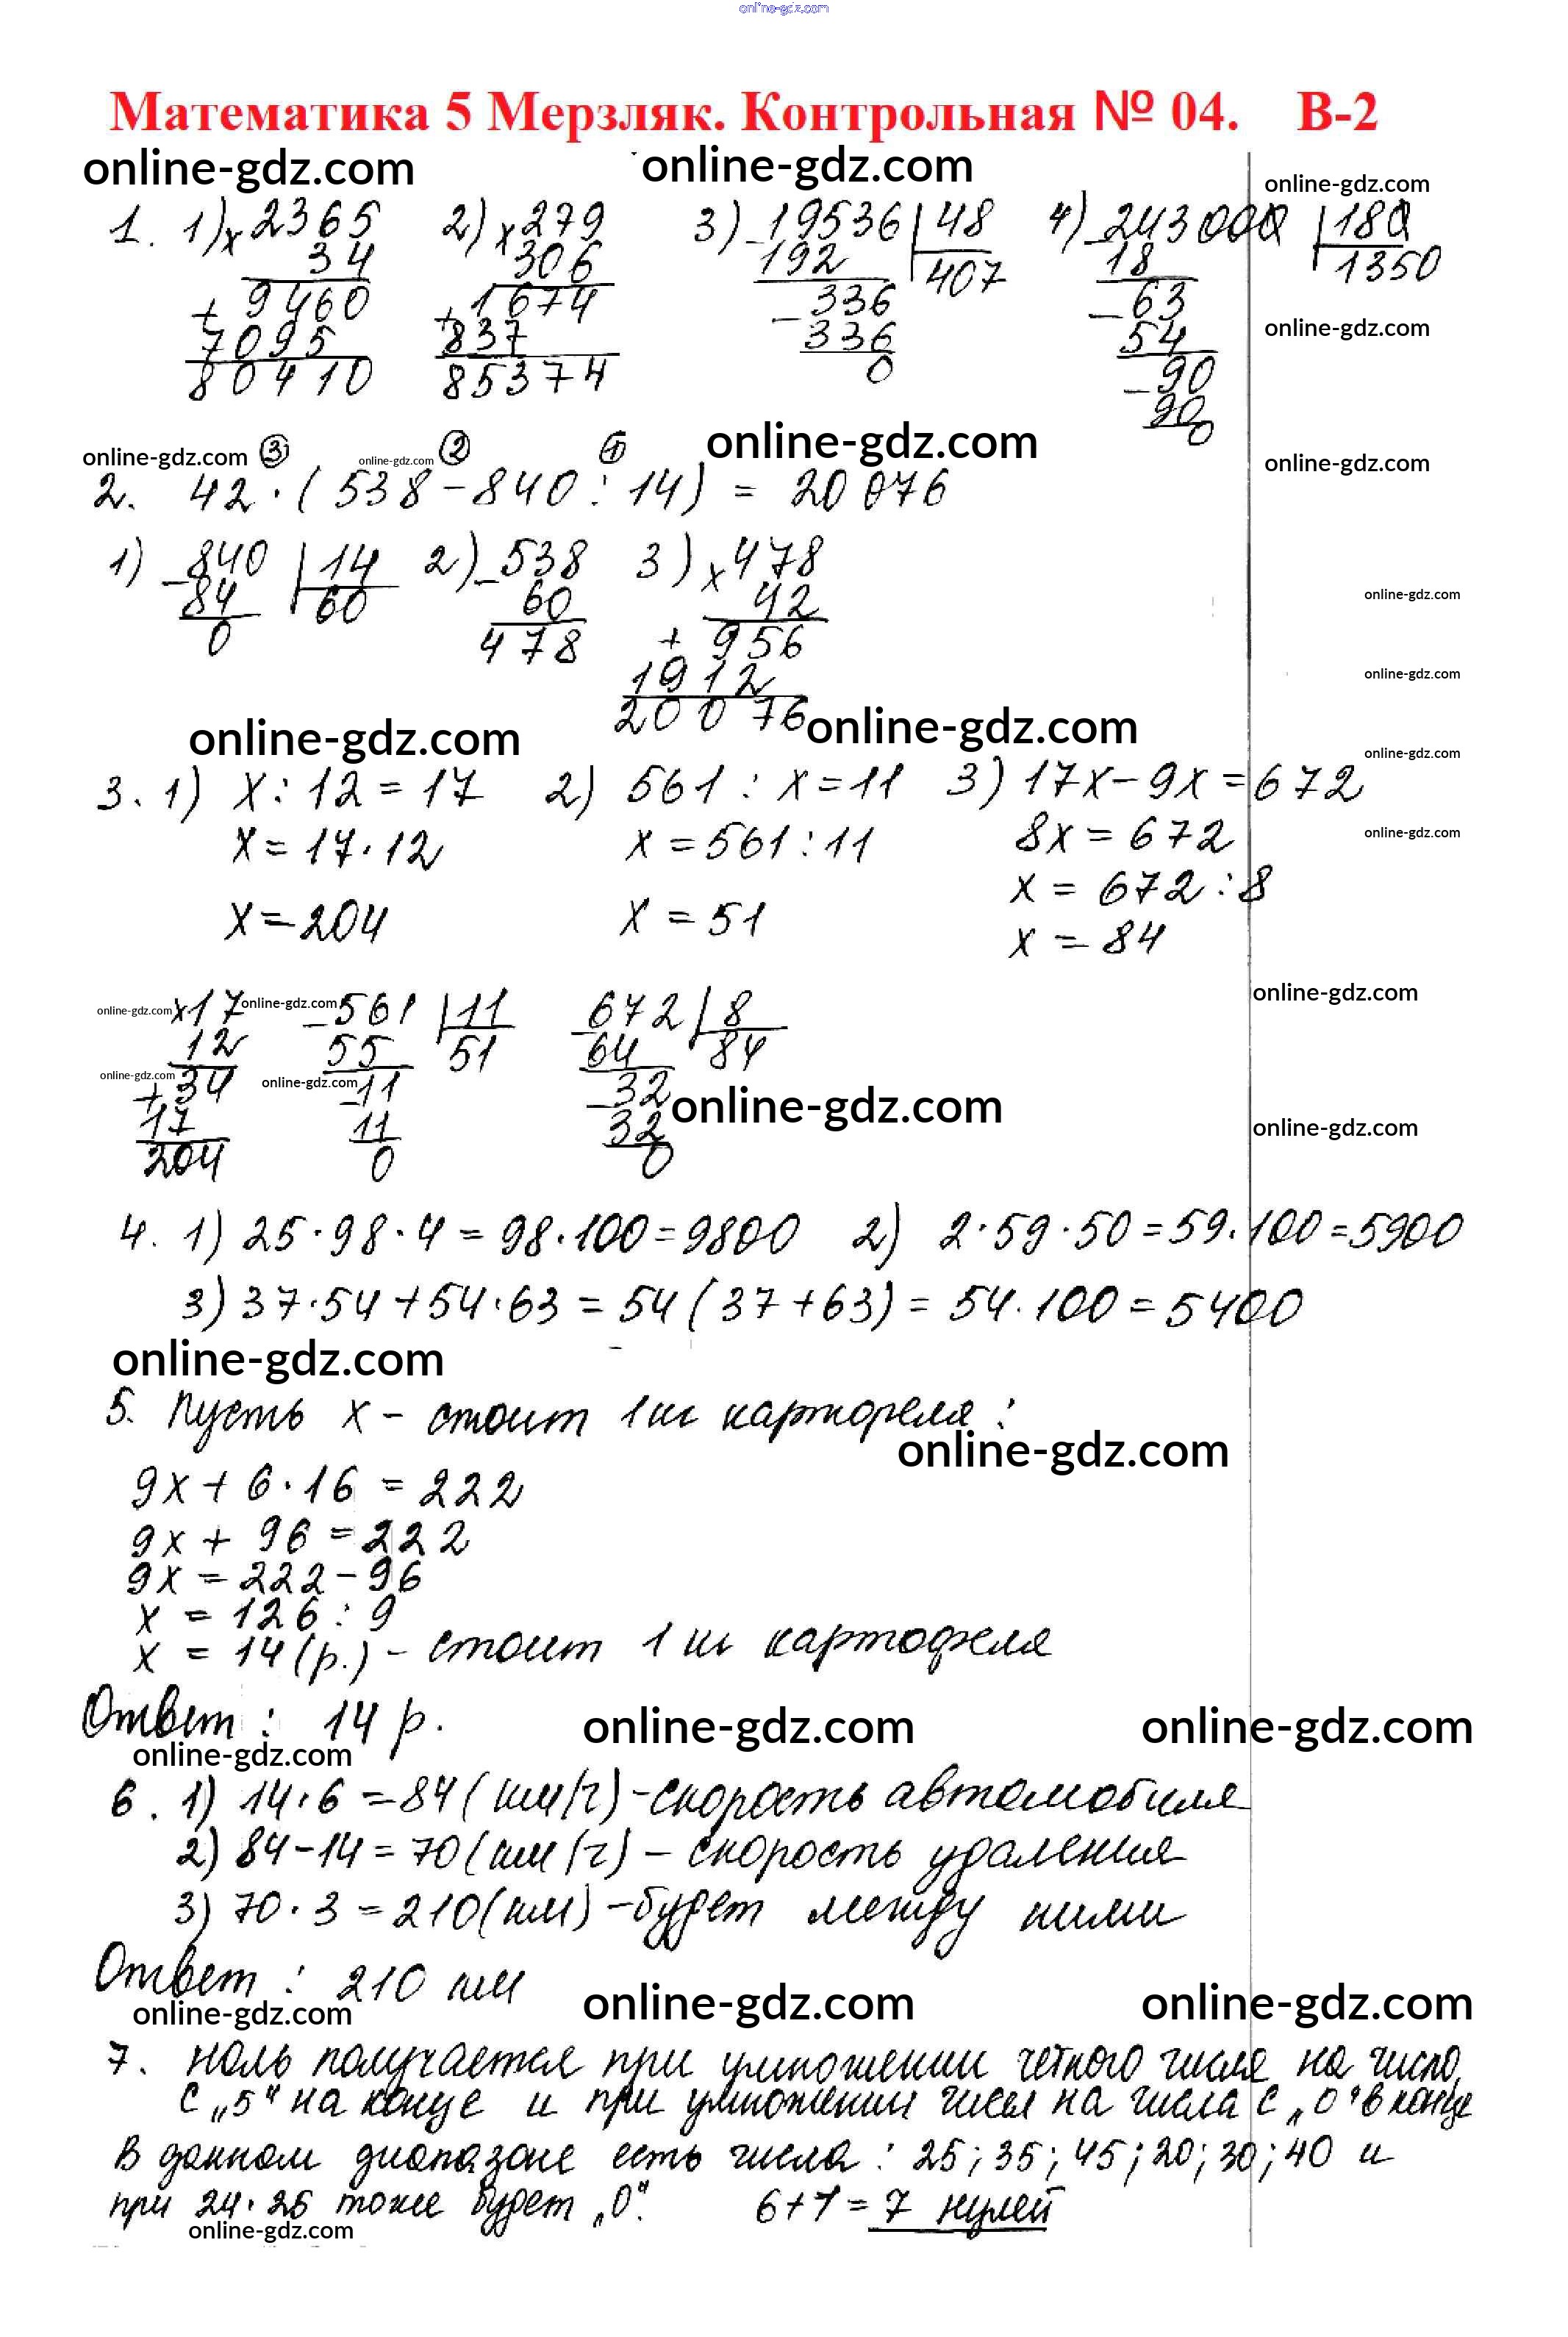 online-gdz.com
Математика 5 Мерзляк. Контрольная № 04. В-2
online-gdz.com online-gdz.com online-gdz.com
1. 1) x 2365 2) x 279 3) - 19536 | 48 4) - 243000 | 180
34 306 192 407 18 1350
+ 9460 + 1674 - 336 - 63 online-gdz.com
7095 837 336 54
80410 85374 0 - 90
90
0
online-gdz.com ③ online-gdz.com ② ① online-gdz.com online-gdz.com
2. 42 · (538 - 840 : 14) = 20 076
1) - 840 | 14 2) - 538 3) x 478
84 60 60 42 online-gdz.com
0 478 + 956
1912 online-gdz.com
20076
online-gdz.com online-gdz.com online-gdz.com
3. 1) x : 12 = 17 2) 561 : x = 11 3) 17x - 9x = 672
x = 17 · 12 x = 561 : 11 8x = 672 online-gdz.com
x = 672 : 8
x = 204 x = 51 x = 84
online-gdz.com x 17 online-gdz.com - 561 | 11 - 672 | 8 online-gdz.com
12 55 51 64 84
online-gdz.com + 34 online-gdz.com - 11 - 32 online-gdz.com
17 11 32 online-gdz.com
204 0 0
4. 1) 25 · 98 · 4 = 98 · 100 = 9800 2) 2 · 59 · 50 = 59 · 100 = 5900
3) 37 · 54 + 54 · 63 = 54 (37 + 63) = 54 · 100 = 5400
online-gdz.com
5. Пусть x - стоит 1 кг картофеля:
online-gdz.com
9x + 6 · 16 = 222
9x + 96 = 222
9x = 222 - 96
x = 126 : 9
x = 14 (р.) - стоит 1 кг картофеля
Ответ: 14 р. online-gdz.com online-gdz.com
online-gdz.com
6. 1) 14 · 6 = 84 (км/ч) - скорость автомобиля
2) 84 - 14 = 70 (км/ч) - скорость удаления
3) 70 · 3 = 210 (км) - будет между ними
Ответ: 210 км
online-gdz.com online-gdz.com online-gdz.com
7. Ноль получается при умножении четного числа на число
с „5" на конце и при умножении чисел на числа с „0" в конце
В данном диапазоне есть числа: 25; 35; 45; 20; 30; 40 и
при 24 · 25 тоже будет „0". 6 + 1 = 7 нулей
online-gdz.com